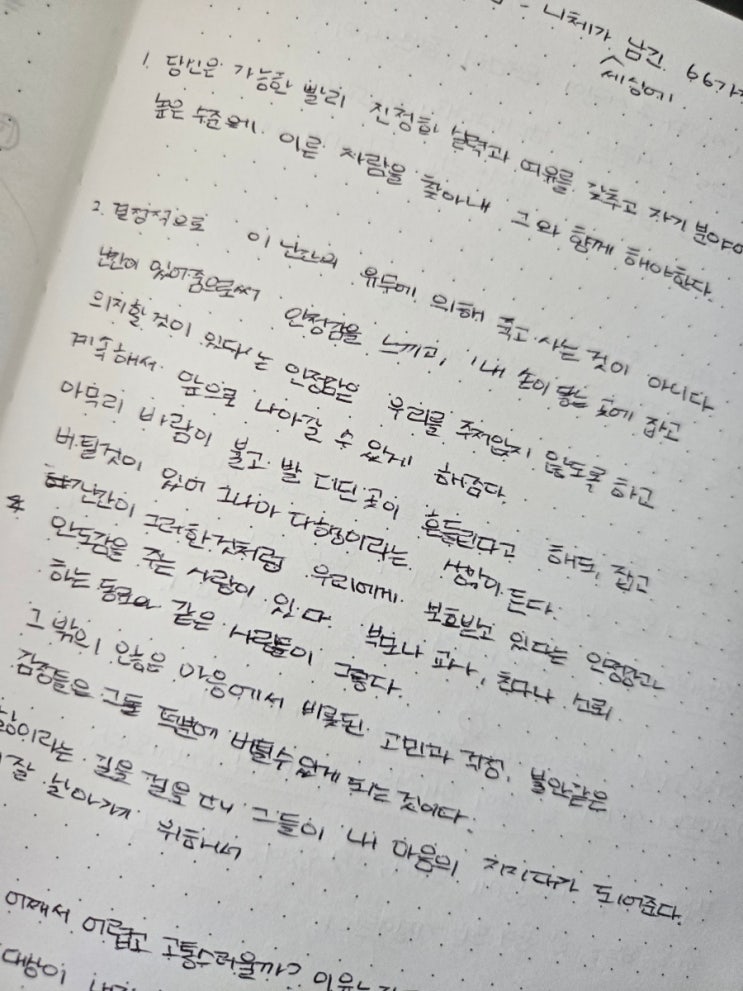 - 니체가 남긴 66가지
세상에
1. 당신은 가능한 빨리 진정한 실력과 여유를 갖추고 자기 분야에
높은 수준에 이른 사람을 찾아내 그와 함께 해야한다.
2. 결정적으로 이 난간의 유무에 의해 죽고 사는 것이 아니다
난간이 있어줌으로써 안정감을 느끼고, '내 손이 닿는 곳에 잡고
의지할 것이 있다'는 안정감은 우리를 주저앉지 않도록 하고
계속해서 앞으로 나아갈 수 있게 해준다.
아무리 바람이 불고 발 디딘 곳이 흔들린다고 해도, 잡고
버틸것이 있어 그나마 다행이라는 생각이 든다.
난간이 그러한것처럼 우리에게 보호받고 있다는 안정감과
안도감을 주는 사람이 있다. 부모나 교사, 친구나 신뢰
하는 동료와 같은 사람들이 그렇다.
그 밖의 않좋은 마음에서 비롯된 고민과 걱정, 불안같은
감정들은 그들 덕분에 버틸수있게 되는 것이다.
이라는 길을 걸을 때 그들이 내 마음의 지지대가 되어준다.
잘 살아가기 위해서
어째서 어렵고 고통스러울까? 이유는
대상이